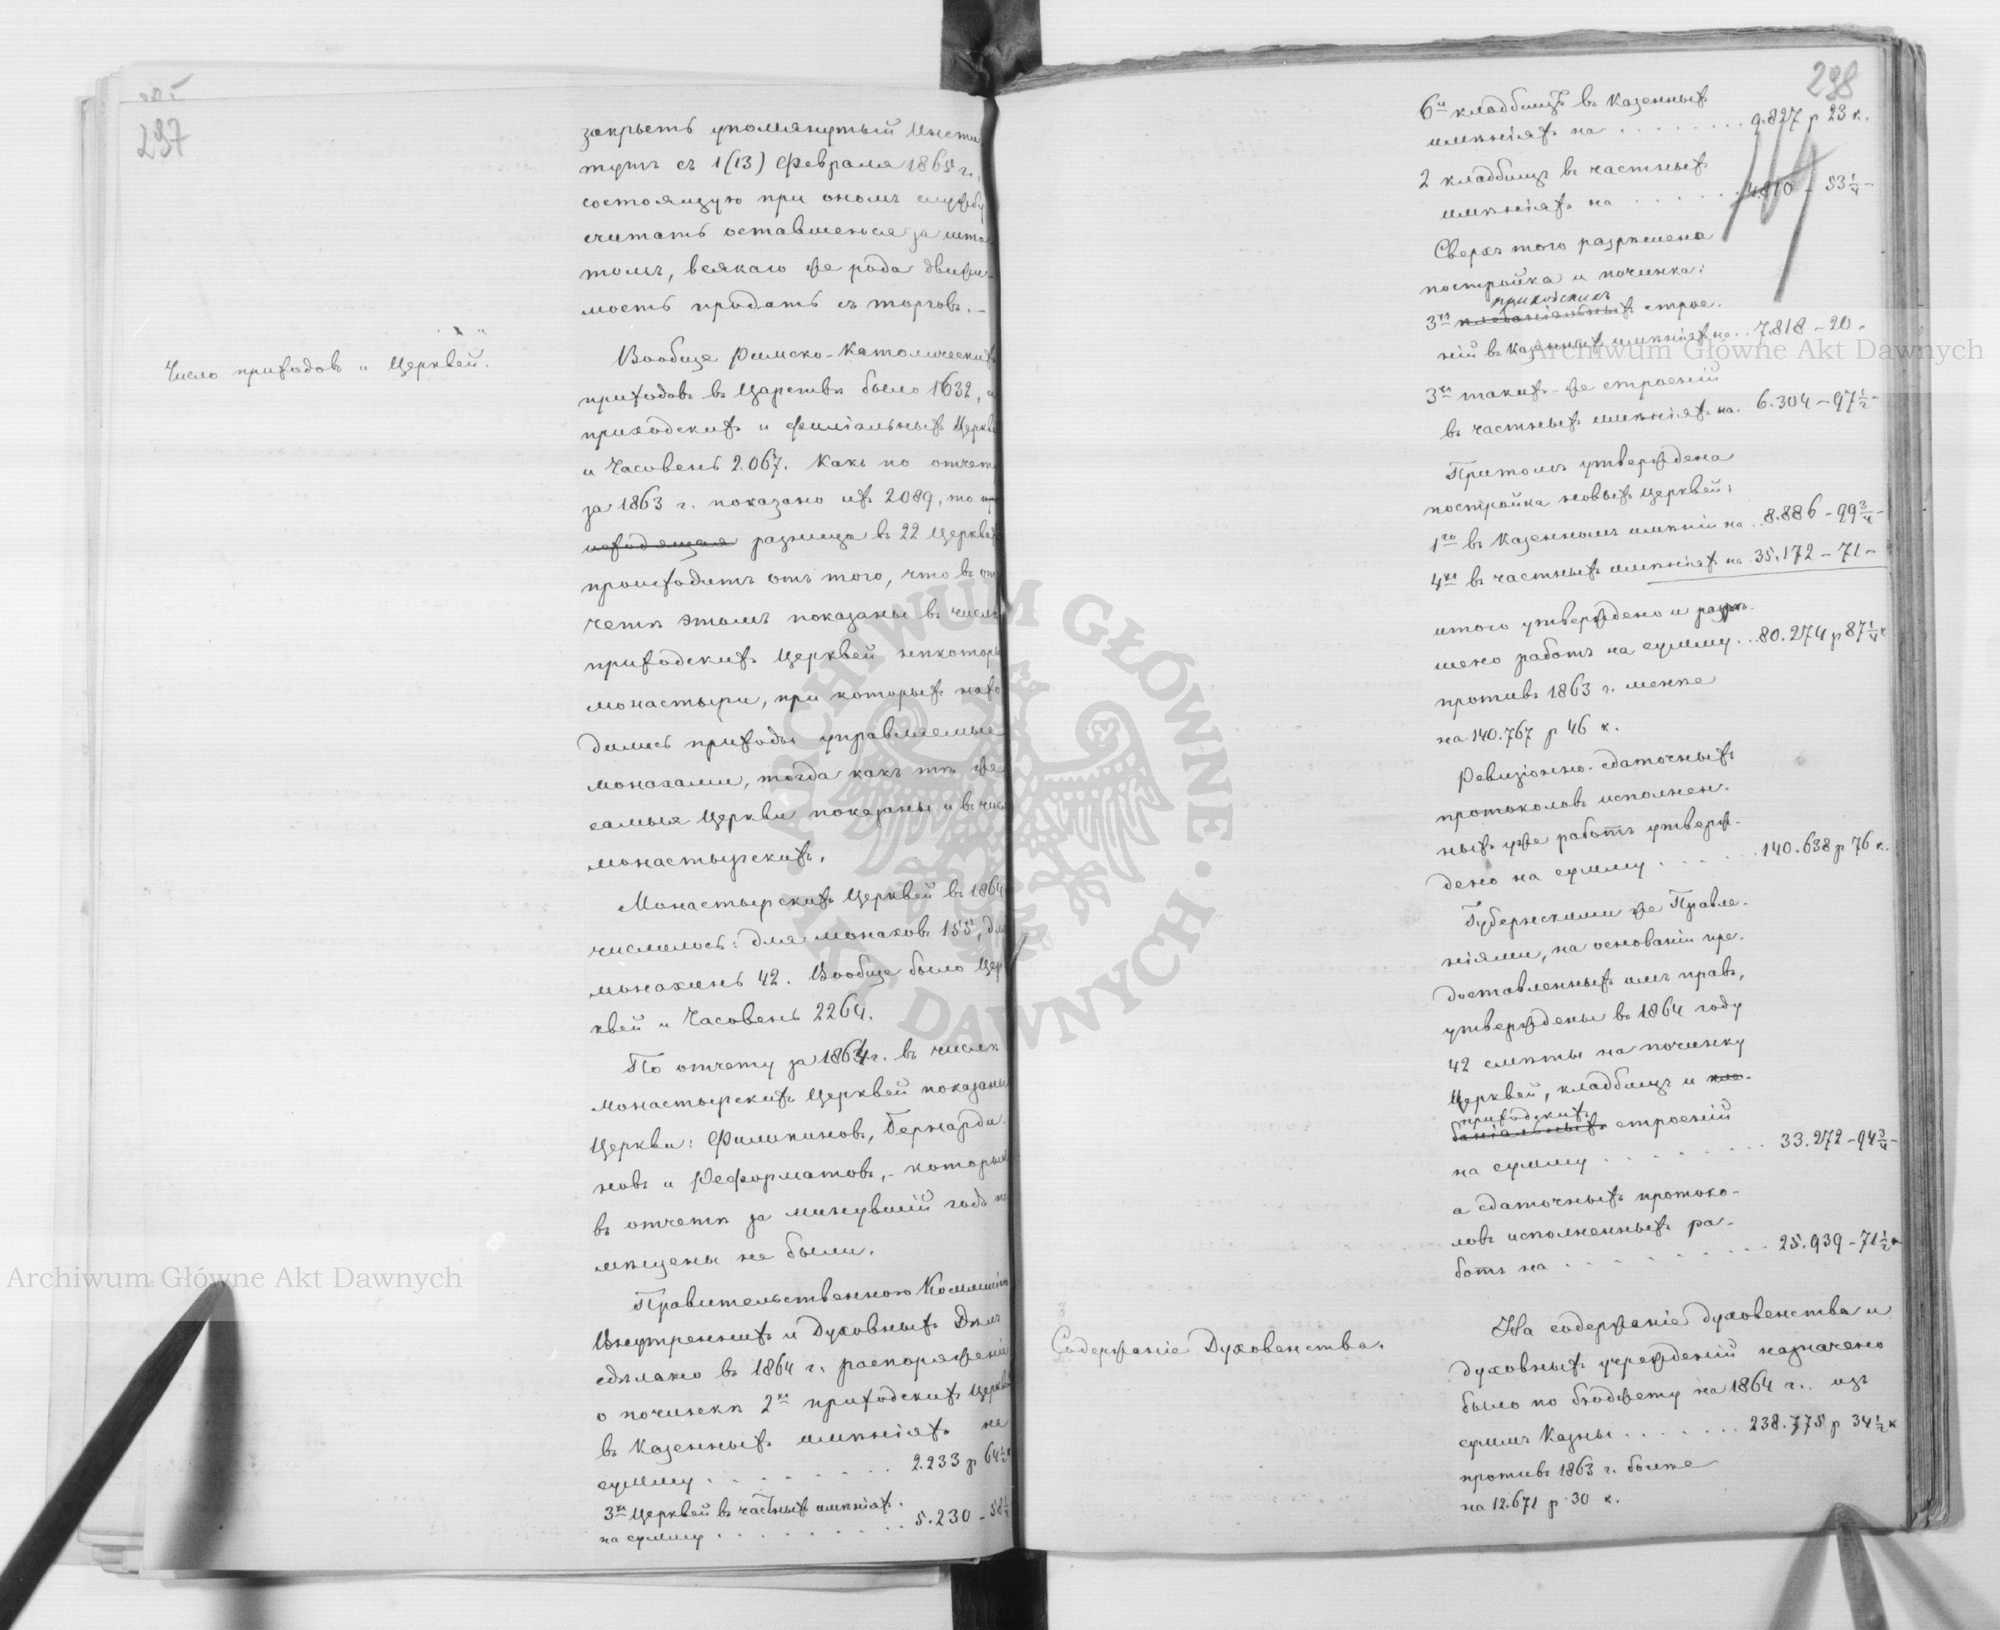 237
закрыть упомянутый Инсти
тутъ съ 1(13) Февраля 1865 г.,
состоящую при ономъ службу
считать оставшеюся за шта
томъ, всякаго же рода движи-
мость продать съ торговъ.
Число приходовъ и Церквей.
Вообще Римско-Католическихъ
приходовъ въ Царствѣ было 1632, а
приходскихъ и филіальныхъ Церкв
и Часовень 2.067. Какъ по отчет
за 1863 г. показано ихъ 2089, то
исходящая разница въ 22 Церквах
происходитъ отъ того, что въ от
четѣ этомъ показаны въ числѣ
приходскихъ Церквей нѣкоторы
монастыри, при которыхъ нахо
дились приходы управляемые
монахами, тогда какъ тѣ же
самыя Церкви показаны и въ числ
монастырскихъ.
Монастырскихъ Церквей въ 1864
числилось: для монаховъ 155, для
монахинь 42. Вообще было Цер
квей и Часовень 2264.
По отчету за 1864 г. въ числѣ
монастырскихъ Церквей показаны
Церкви: Филипиновъ, Бернарди
новъ и Реформатовъ, которыя
въ отчетѣ за минувшій годъ по
мѣщены не были.
Правительственною Коммисіею
Внутреннихъ и Духовныхъ Дѣлъ
сдѣлано въ 1864 г. распоряженіе
о починкѣ 2хъ приходскихъ Церкв
въ Казенныхъ имѣніяхъ на
сумму . . . . . . . . 2.233 р 64½
3хъ Церквей въ частныхъ имѣніях.
на сумму . . . . . . . . 5.230 - 58
238
6и кладбищъ въ Казенныхъ
имѣніяхъ на . . . . . . . . 9.827 р 23 к.
2 кладбищъ въ частныхъ
имѣніяхъ на . . . . . . 4.810 - 53¼ -
Сверхъ того разрѣшена
постройка и починка:
приходскихъ
3хъ плебаніальныхъ строе-
ній въ Казенныхъ имѣніяхъ на . . 7.818 - 20 -
3хъ такихъ-же строеній
въ частныхъ имѣніяхъ на . 6.304 - 97½ -
Притомъ утверждена
постройка новыхъ Церквей:
1го въ Казенномъ имѣніи на . . 8.886 - 99¾ -
4хъ въ частныхъ имѣніяхъ на 35.172 - 71 -
итого утверждено и разрѣ-
шено работъ на сумму . . . 80.274 р 87¼ к
противъ 1863 г. менѣе
на 140.767 р 46 к.
Ревизіонно-сдаточныхъ
протоколовъ исполнен-
ныхъ уже работъ утверж-
дено на сумму . . . . . . 140.638 р 76 к.
Губернскими же Правле-
ніями, на основаніи пре-
доставленныхъ имъ правъ,
утверждены въ 1864 году
42 смѣты на починку
Церквей, кладбищъ и пле-
приходскихъ
баніальныхъ строеній
на сумму . . . . . . . . . 33.272 - 94¾ -
а сдаточныхъ протоко-
ловъ исполненныхъ ра-
ботъ на . . . . . . . . . 25.939 - 71½ к
Содержаніе Духовенства.
На содержаніе духовенства и
духовныхъ учрежденій назначено
было по бюджету на 1864 г. изъ
суммъ Казны . . . . . . . 238.775 р 34½ к
противъ 1863 г. болѣе
на 12.671 р 30 к.
Archiwum Główne Akt Dawnych
Archiwum Główne Akt Dawnych
ARCHIWUM GŁÓWNE · AKT DAWNYCH ·